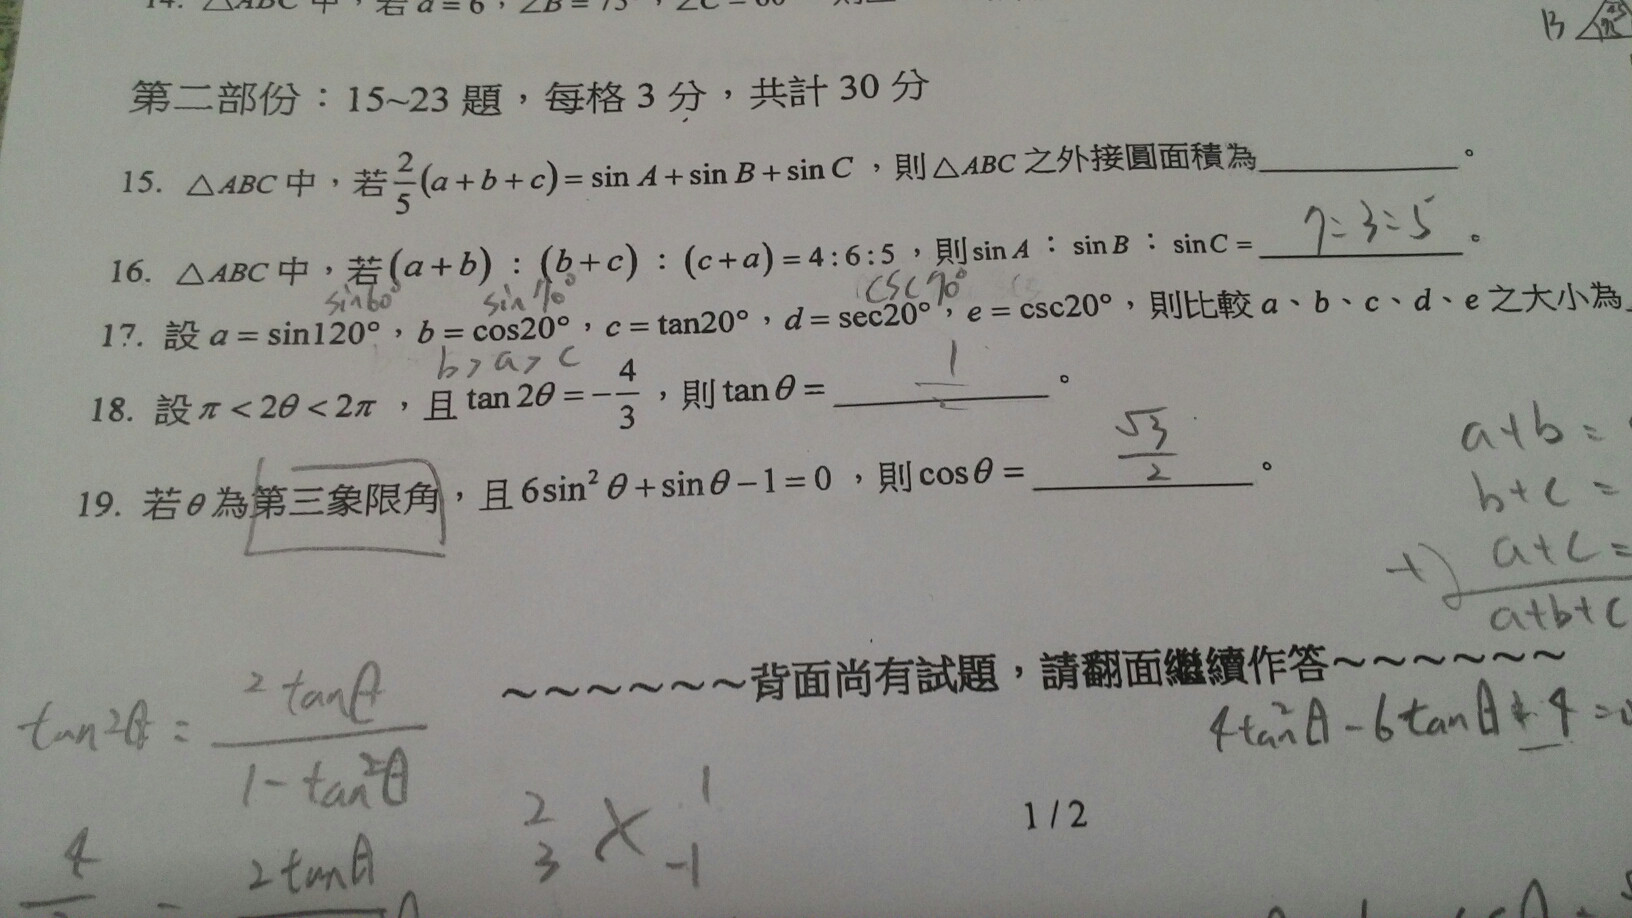 14. △ABC 中，若 a = 6，∠B = 75°，∠C = 60°
B
第二部份：15~23 題，每格 3 分，共計 30 分
15. △ABC 中，若 2/5 (a + b + c) = sin A + sin B + sin C ，則△ABC 之外接圓面積為______。
16. △ABC 中，若 (a + b) : (b + c) : (c + a) = 4 : 6 : 5，則 sin A : sin B : sin C = 7:3:5 。
sin60° sin70° csc70°
17. 設 a = sin120°，b = cos20°，c = tan20°，d = sec20°，e = csc20°，則比較 a、b、c、d、e 之大小為
b > a > c
18. 設 π < 2θ < 2π ，且 tan 2θ = -4/3 ，則 tan θ = ______。
19. 若 θ 為第三象限角，且 6sin² θ + sin θ − 1 = 0 ，則 cos θ = √3/2 。
a+b =
b+c =
+) a+c =
a+b+c
~~~~~~背面尚有試題，請翻面繼續作答~~~~~~
tan2θ = 2tanθ / 1-tan²θ
4tan²θ - 6tanθ
2 1
3 -1
1 / 2
4
2tanθ